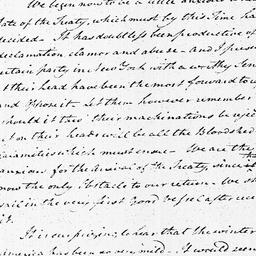 We begin now to be a little anxious
fate of the Treaty, which must by this time ha
ecided. It has doubtless been productive of
declamation clamor and abuse - and I pres
certain party in New York with a worthy
t their head have been the most forward to
and oppose it. Let them however remember
should it thro' their machinations be rejec
t on their heads will be all the Bloodshed
calamities which must ensue. We are the
anxious for the arrival of the Treaty, since that
now the only obstacle to our return. We sh
sail in the very first good Vessel after
it.
It is surprising to hear that the winter
America has been so very mild. It would seem